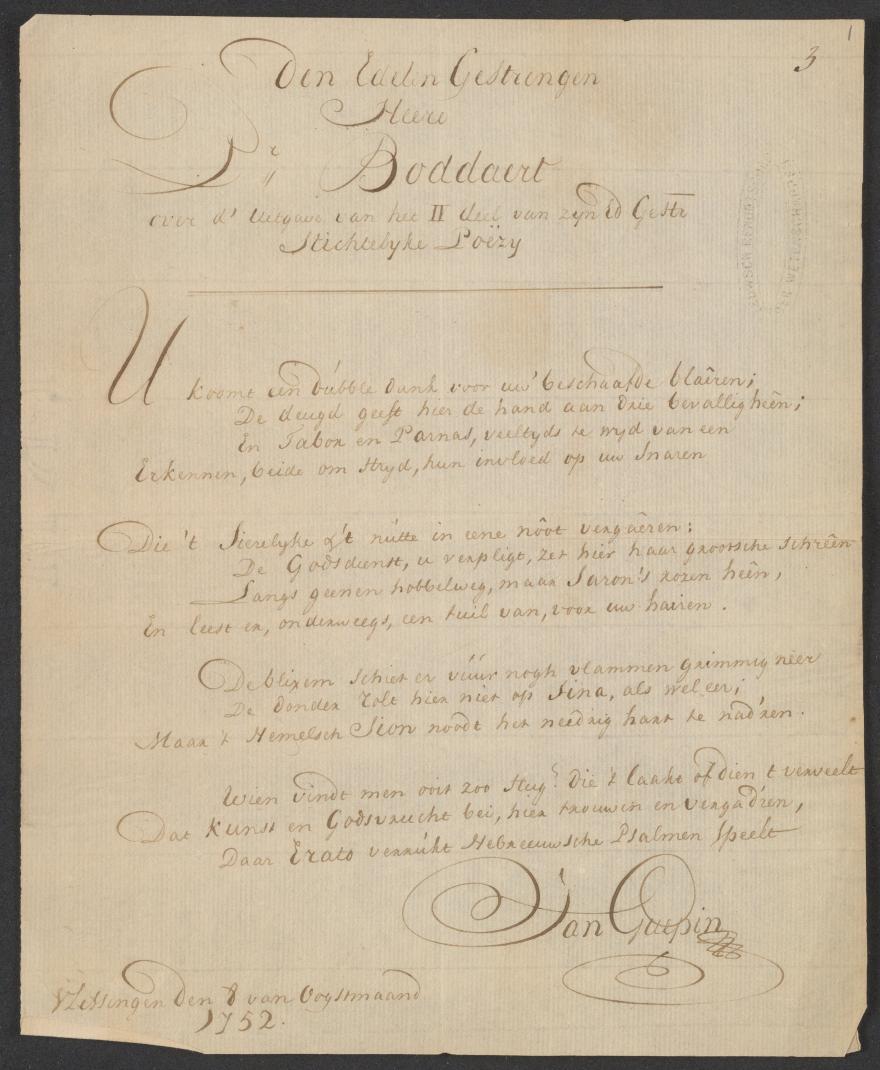 3
1
Den Edelen Gestrengen
Heere
Boddaert
over d' Uitgave van het II deel van zyn Ed Gestr
Stichtelyke Poëzy
U koomt een dúbble dank voor uw' beschaafde blaêren;
De deugd geeft hier de hand aan drie bevalligheên;
En Tabor en Parnas, veeltyds te wyd van een
Erkennen, beide om stryd, hun invloed op uw snaren
Die 't Sierelyke & 't nútte in eene nôot vergaêren:
De Godsdienst, u verpligt, zet hier haar grootsche schrêen
Langs geenen hobbelweg, maar Saron's rozen heên,
En leest er, onderweegs, een tuil van, voor uw hairen.
De blixem schiet er vúúr nogh vlammen grimmig neêr
De donder rolt hier niet op Sina, als wel eer;
Maar 't Hemelsch Sion noodt het needrig hart te nad'ren.
Wien vindt men ooit zoo stug? die 't laakt of dien 't verveelt
Dat kunst en Godsvrucht bei, hier trouwen en vergad'ren,
Daar Erato verrúkt Hebreeuwsche Psalmen speelt
Jan Guepin
Vlissingen den 8 van Oogstmaand
1752.